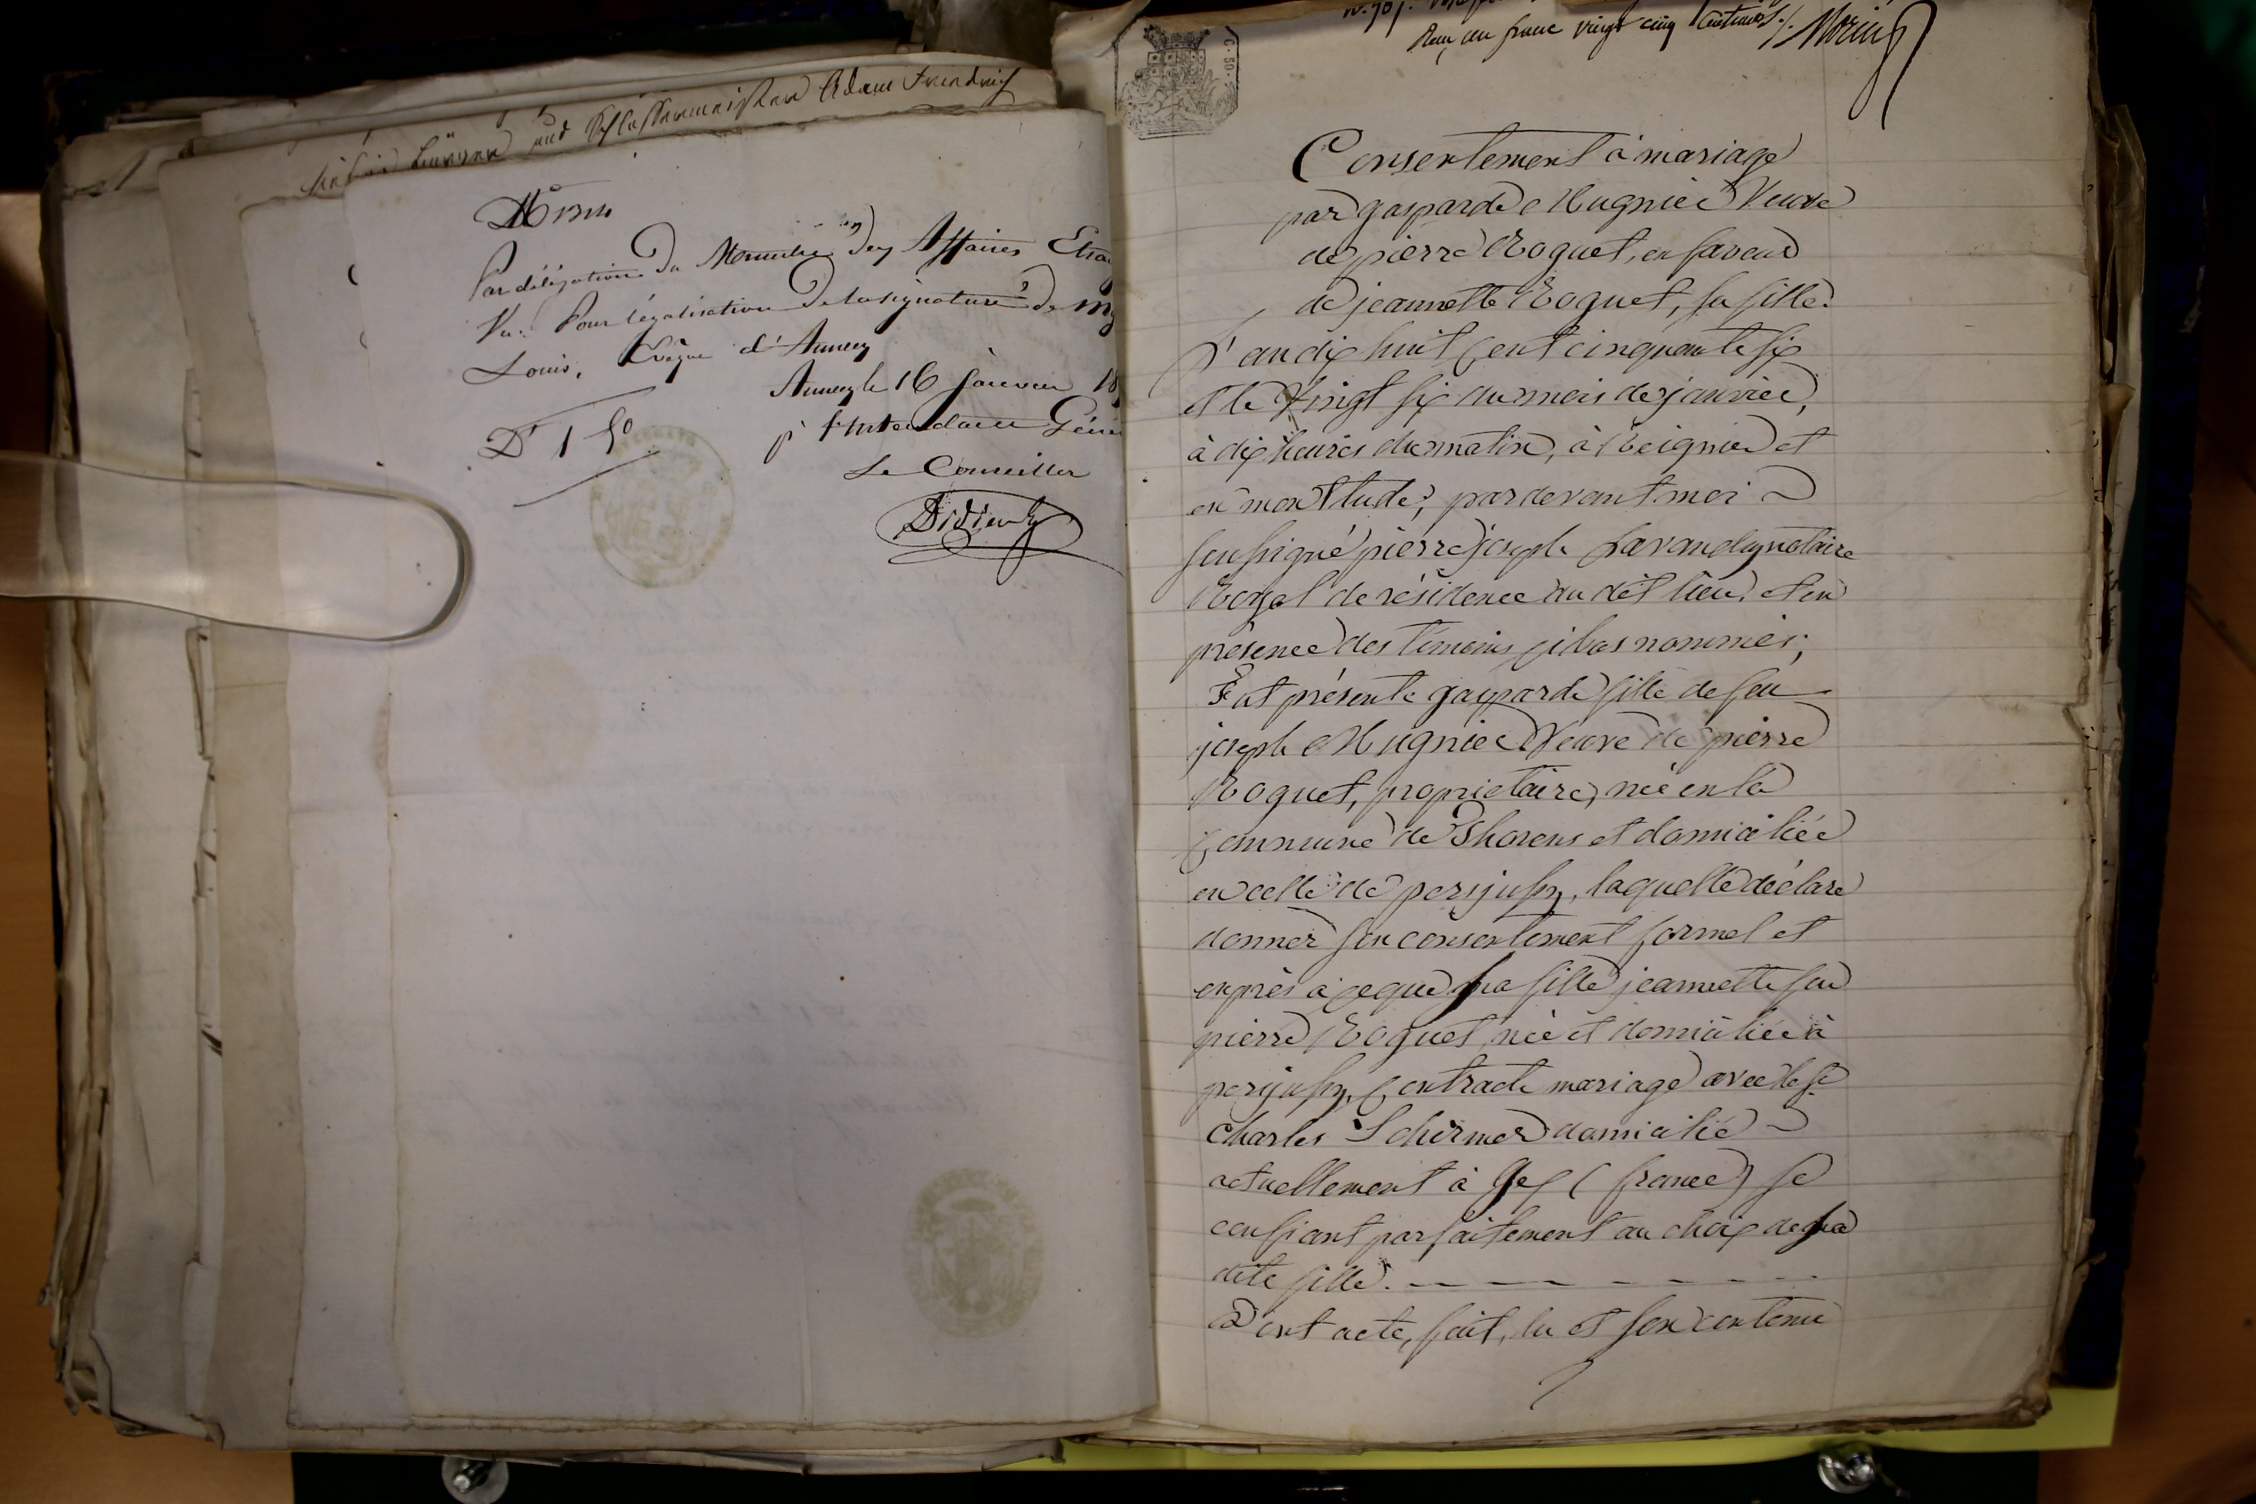 und Schlossermeister Adam Friedrich
Par délégation du Ministère des Affaires Etra
Vu. Pour légalisation de la signature de Mg
Louis, Evêque d'Annecy
Annecy le 16 Janvier 18
D^t 1 50
p^r l'Intendance Géné
Le Conseiller
C. 50.
Reçu un franc vingt cinq Centimes /. Morin
Consentement à mariage
par gasparde Mugnier Veuve
de pierre Roguet, en faveur
de jeannette Roguet, sa fille.
L'an dix huit cent cinquante six
et le Vingt six du mois de janvier,
à dix heures du matin, à Reignier et
en mon Etude; pardevant moi
soussigné pierre joseph notaire
Royal de résidence au dit lieu, et en
présence des témoins ci bas nommés;
Est présente gasparde fille de feu
joseph Mugnier Veuve de pierre
Roguet, propriétaire, née en la
Commune de Thorens et domiciliée
en celle de persjussy, laquelle déclare
donner son consentement formel et
exprès à ce que sa fille jeannette feu
pierre Roguet née et domiciliée à
persjussy, Contracte mariage avec le S^r
Charles Schirmer domicilié
actuellement à Gex (france) se
confiant parfaitement au choix de sa
dite fille. — — — — — — —
Dont acte, fait, lu et son contenu